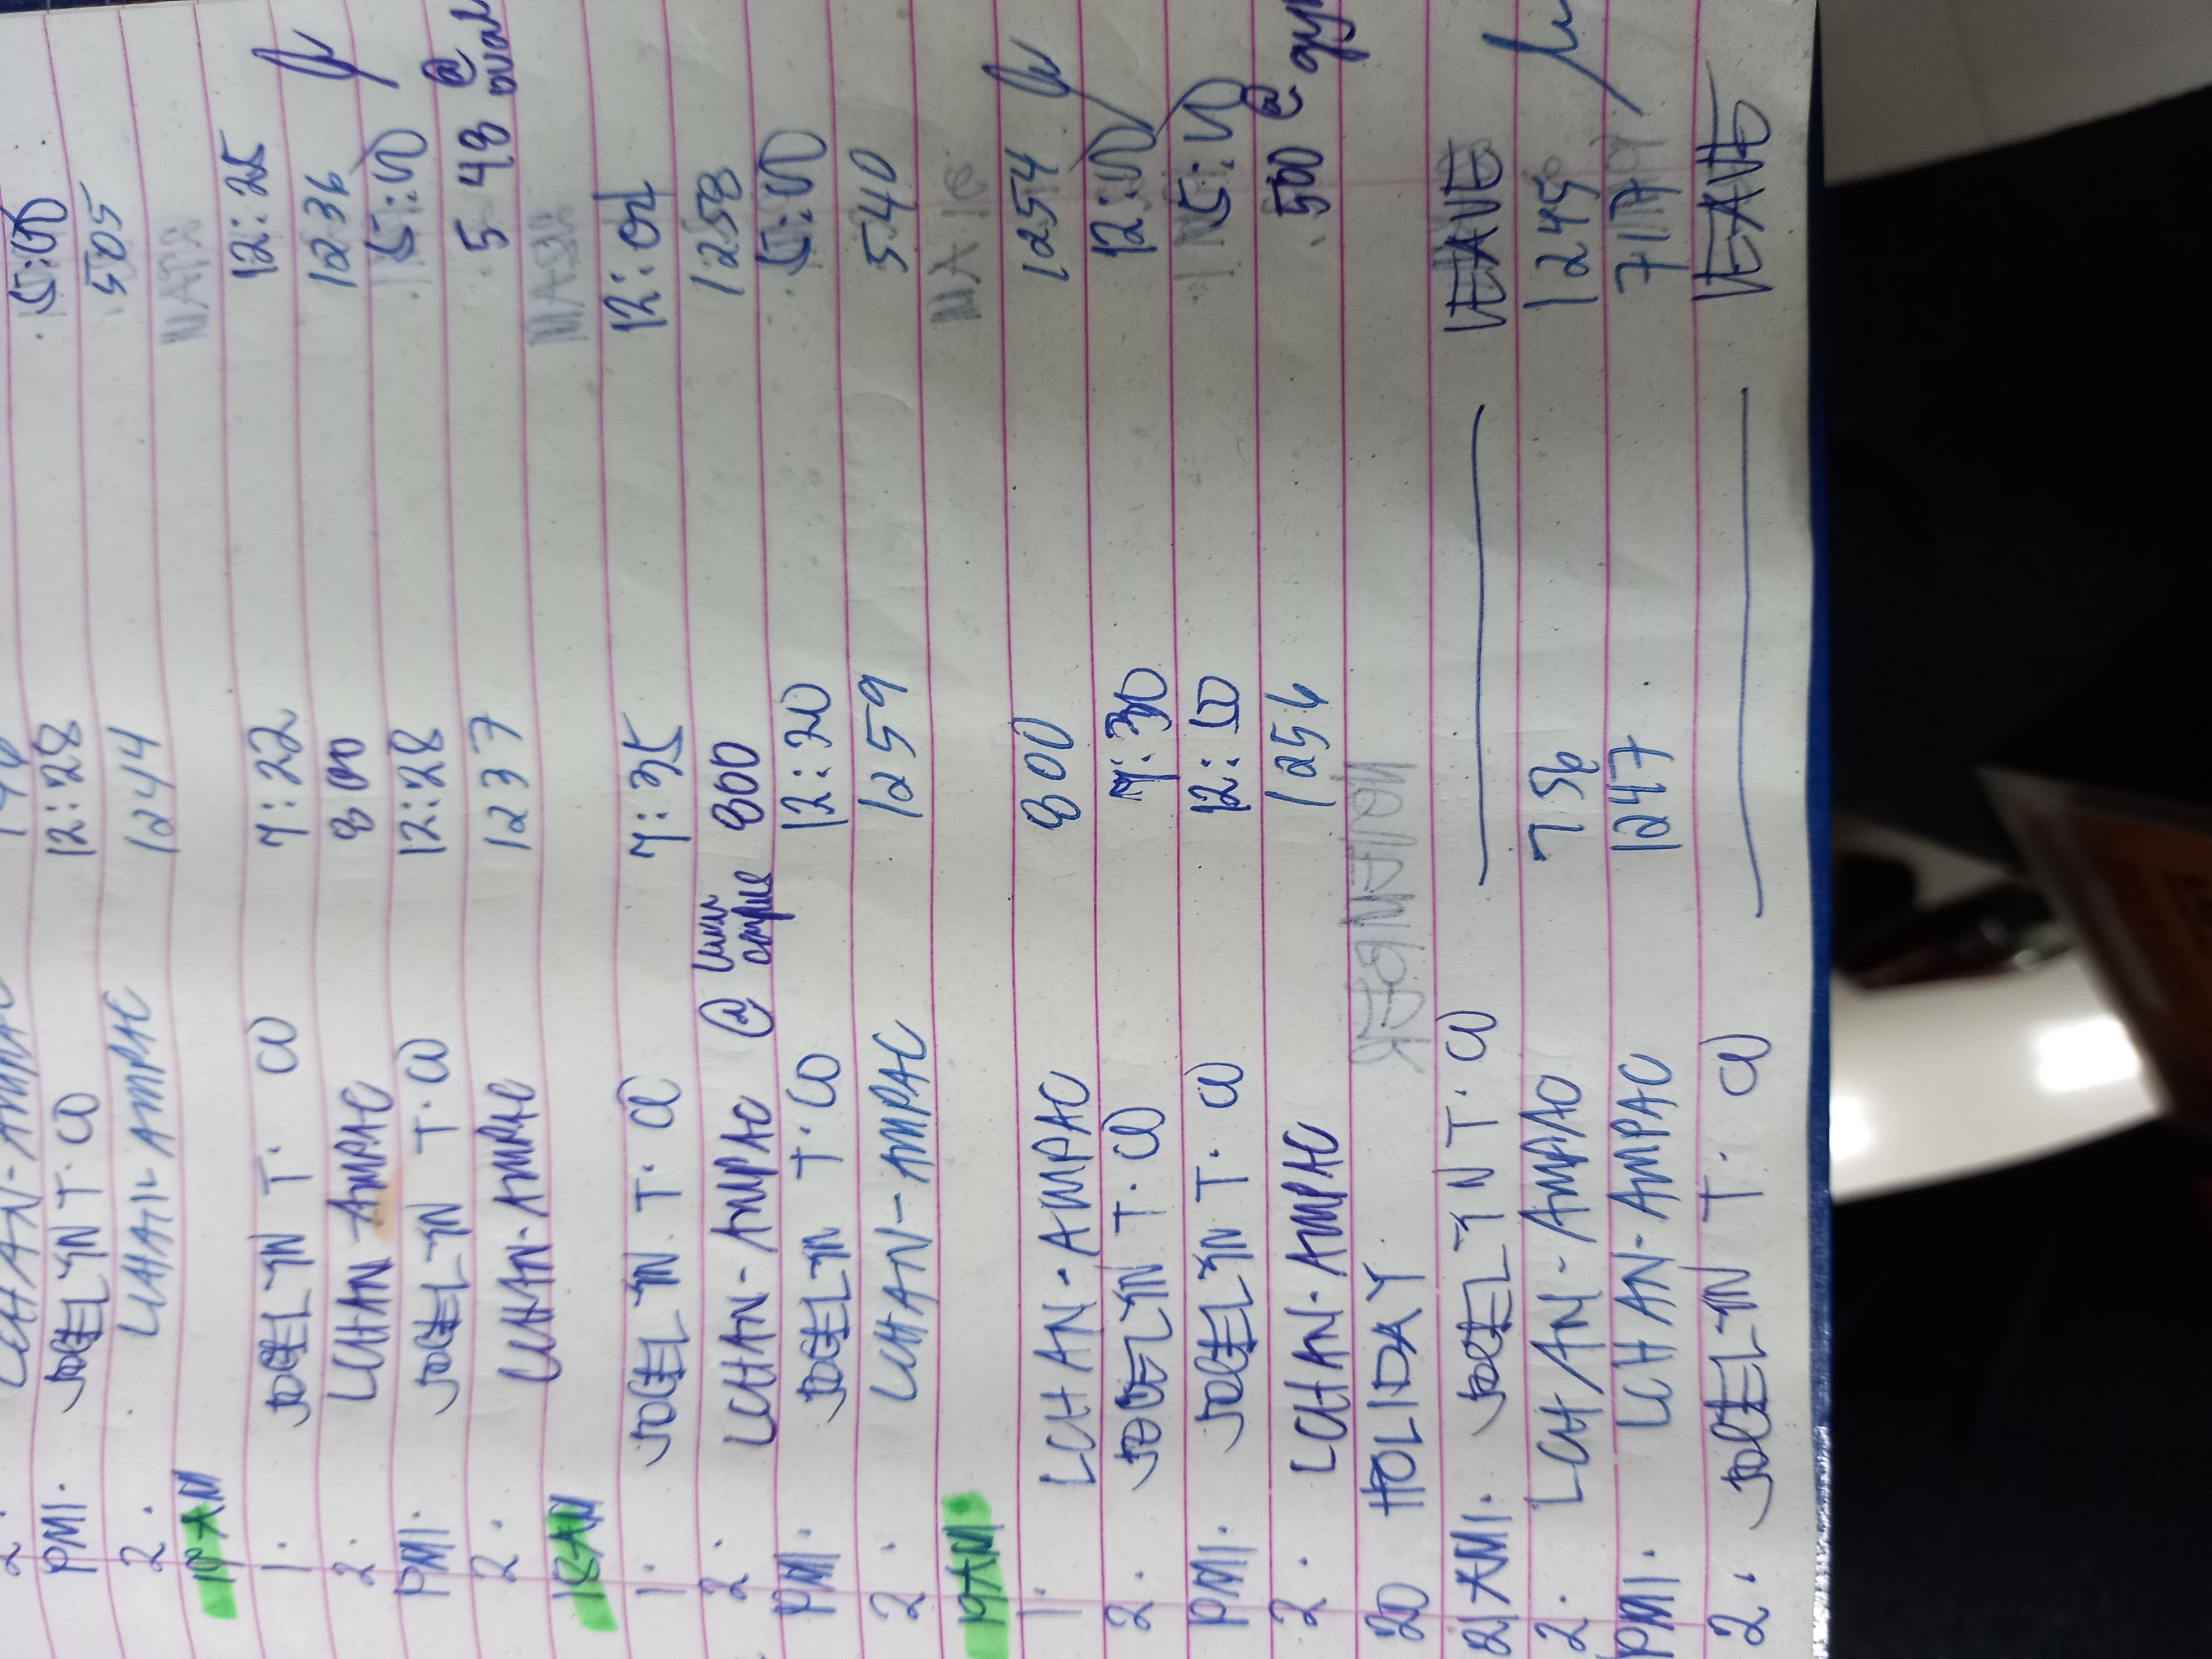 2.
PM1. JOCELYN T. CO 12:28 5:00
2. LCHAN-AMPAC 1244 505
AM
1. JOCELYN T. CO 7:22 12:25
2. LCHAN AMPAC 800 1236
PM1. JOCELYN T. CO 12:28 5:00
2. LCHAN-AMPAC 1237 5 48 @
18AM
1. JOCELYN T. CO 7:35 12:01
2. LCHAN-AMPAC @ campus 800 1258
PM1. JOCELYN T. CO 12:20 5:00
2. LCHAN-AMPAC 1259 540
19AM
1. LCHAN-AMPAC 800 1254
2. JOCELYN T. CO 7:30 12:00
PM1. JOCELYN T. CO 12:10 5:00
2. LCHAN-AMPAC 1256 500 @ gym
20 HOLIDAY
21 AM1. JOCELYN T. CO LEAVE
2. LCHAN-AMPAC 756 1245
PM1. LCHAN-AMPAC 1247 717
2. JOCELYN T. CO LEAVE